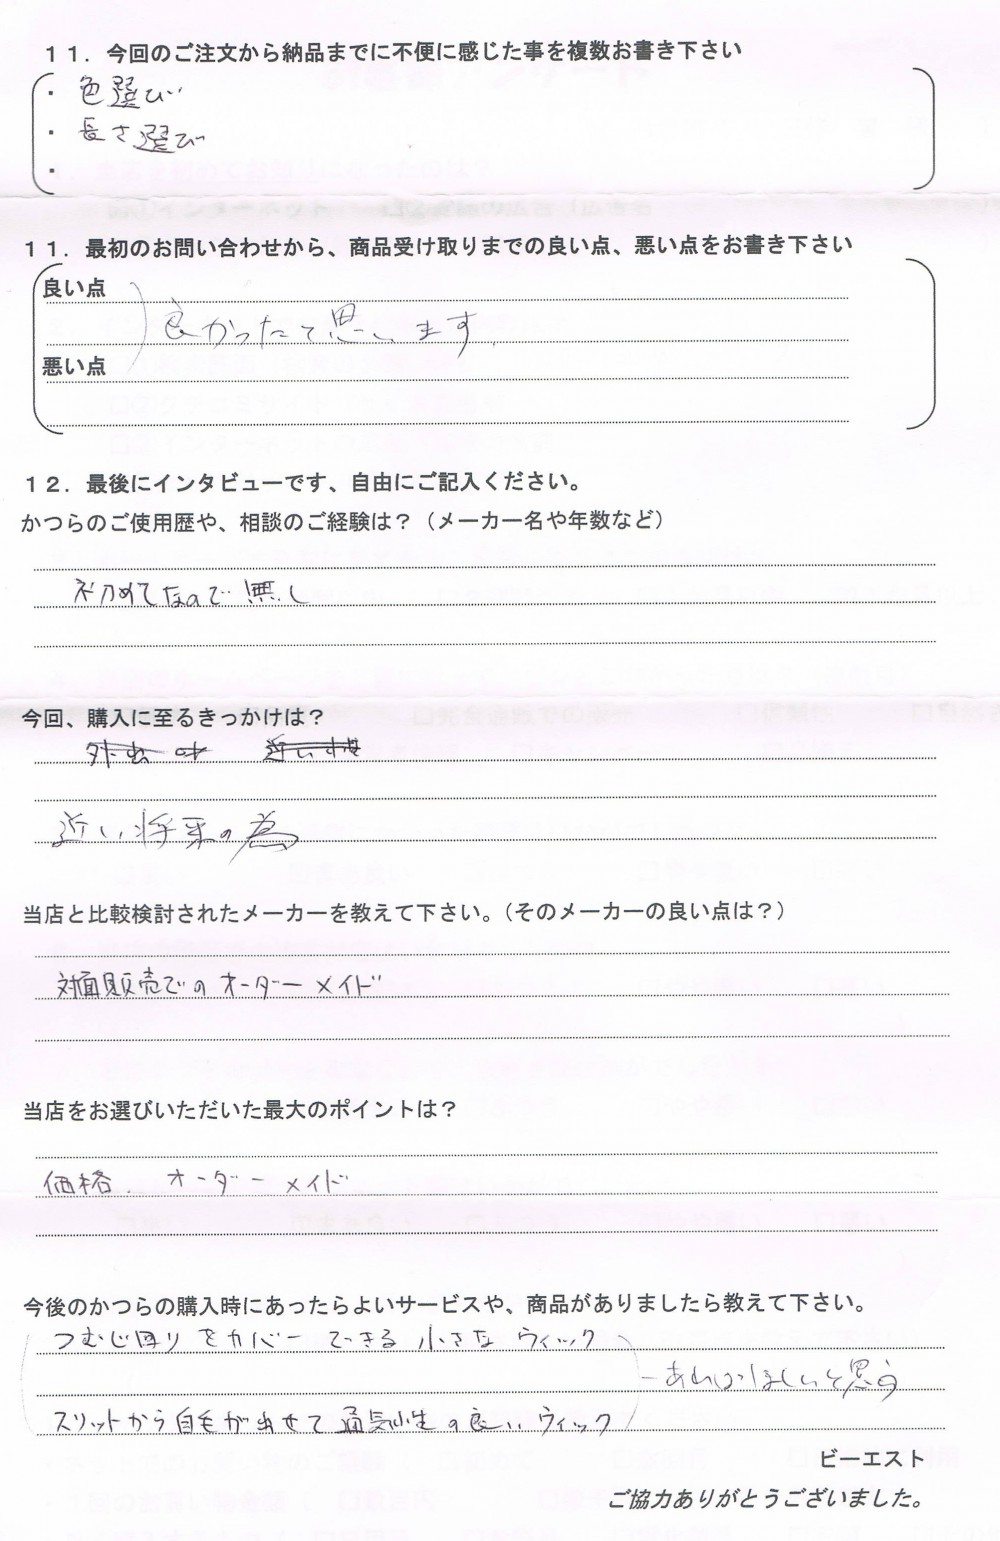 １１．今回のご注文から納品までに不便に感じた事を複数お書き下さい
・色選び
・長さ選び
・
１１．最初のお問い合わせから、商品受け取りまでの良い点、悪い点をお書き下さい
良い点
良かったて思います.
悪い点
１２．最後にインタビューです、自由にご記入ください。
かつらのご使用歴や、相談のご経験は？（メーカー名や年数など）
初めてなので無し
今回、購入に至るきっかけは？
近い将来の為
当店と比較検討されたメーカーを教えて下さい。（そのメーカーの良い点は？）
対面販売でのオーダーメイド
当店をお選びいただいた最大のポイントは？
価格. オーダーメイド
今後のかつらの購入時にあったらよいサービスや、商品がありましたら教えて下さい。
つむじ回りをカバーできる小さなウィック
あればほしいと思う
スリットから自毛が出せて通気性の良いウィック
ビーエスト
ご協力ありがとうございました。